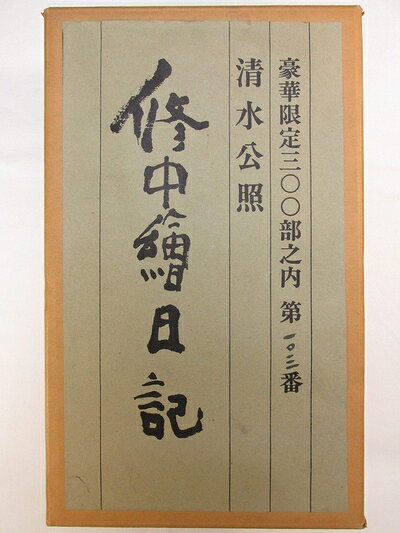 豪華限定三〇〇部之内 第一〇三番
清水公照
修中繪日記